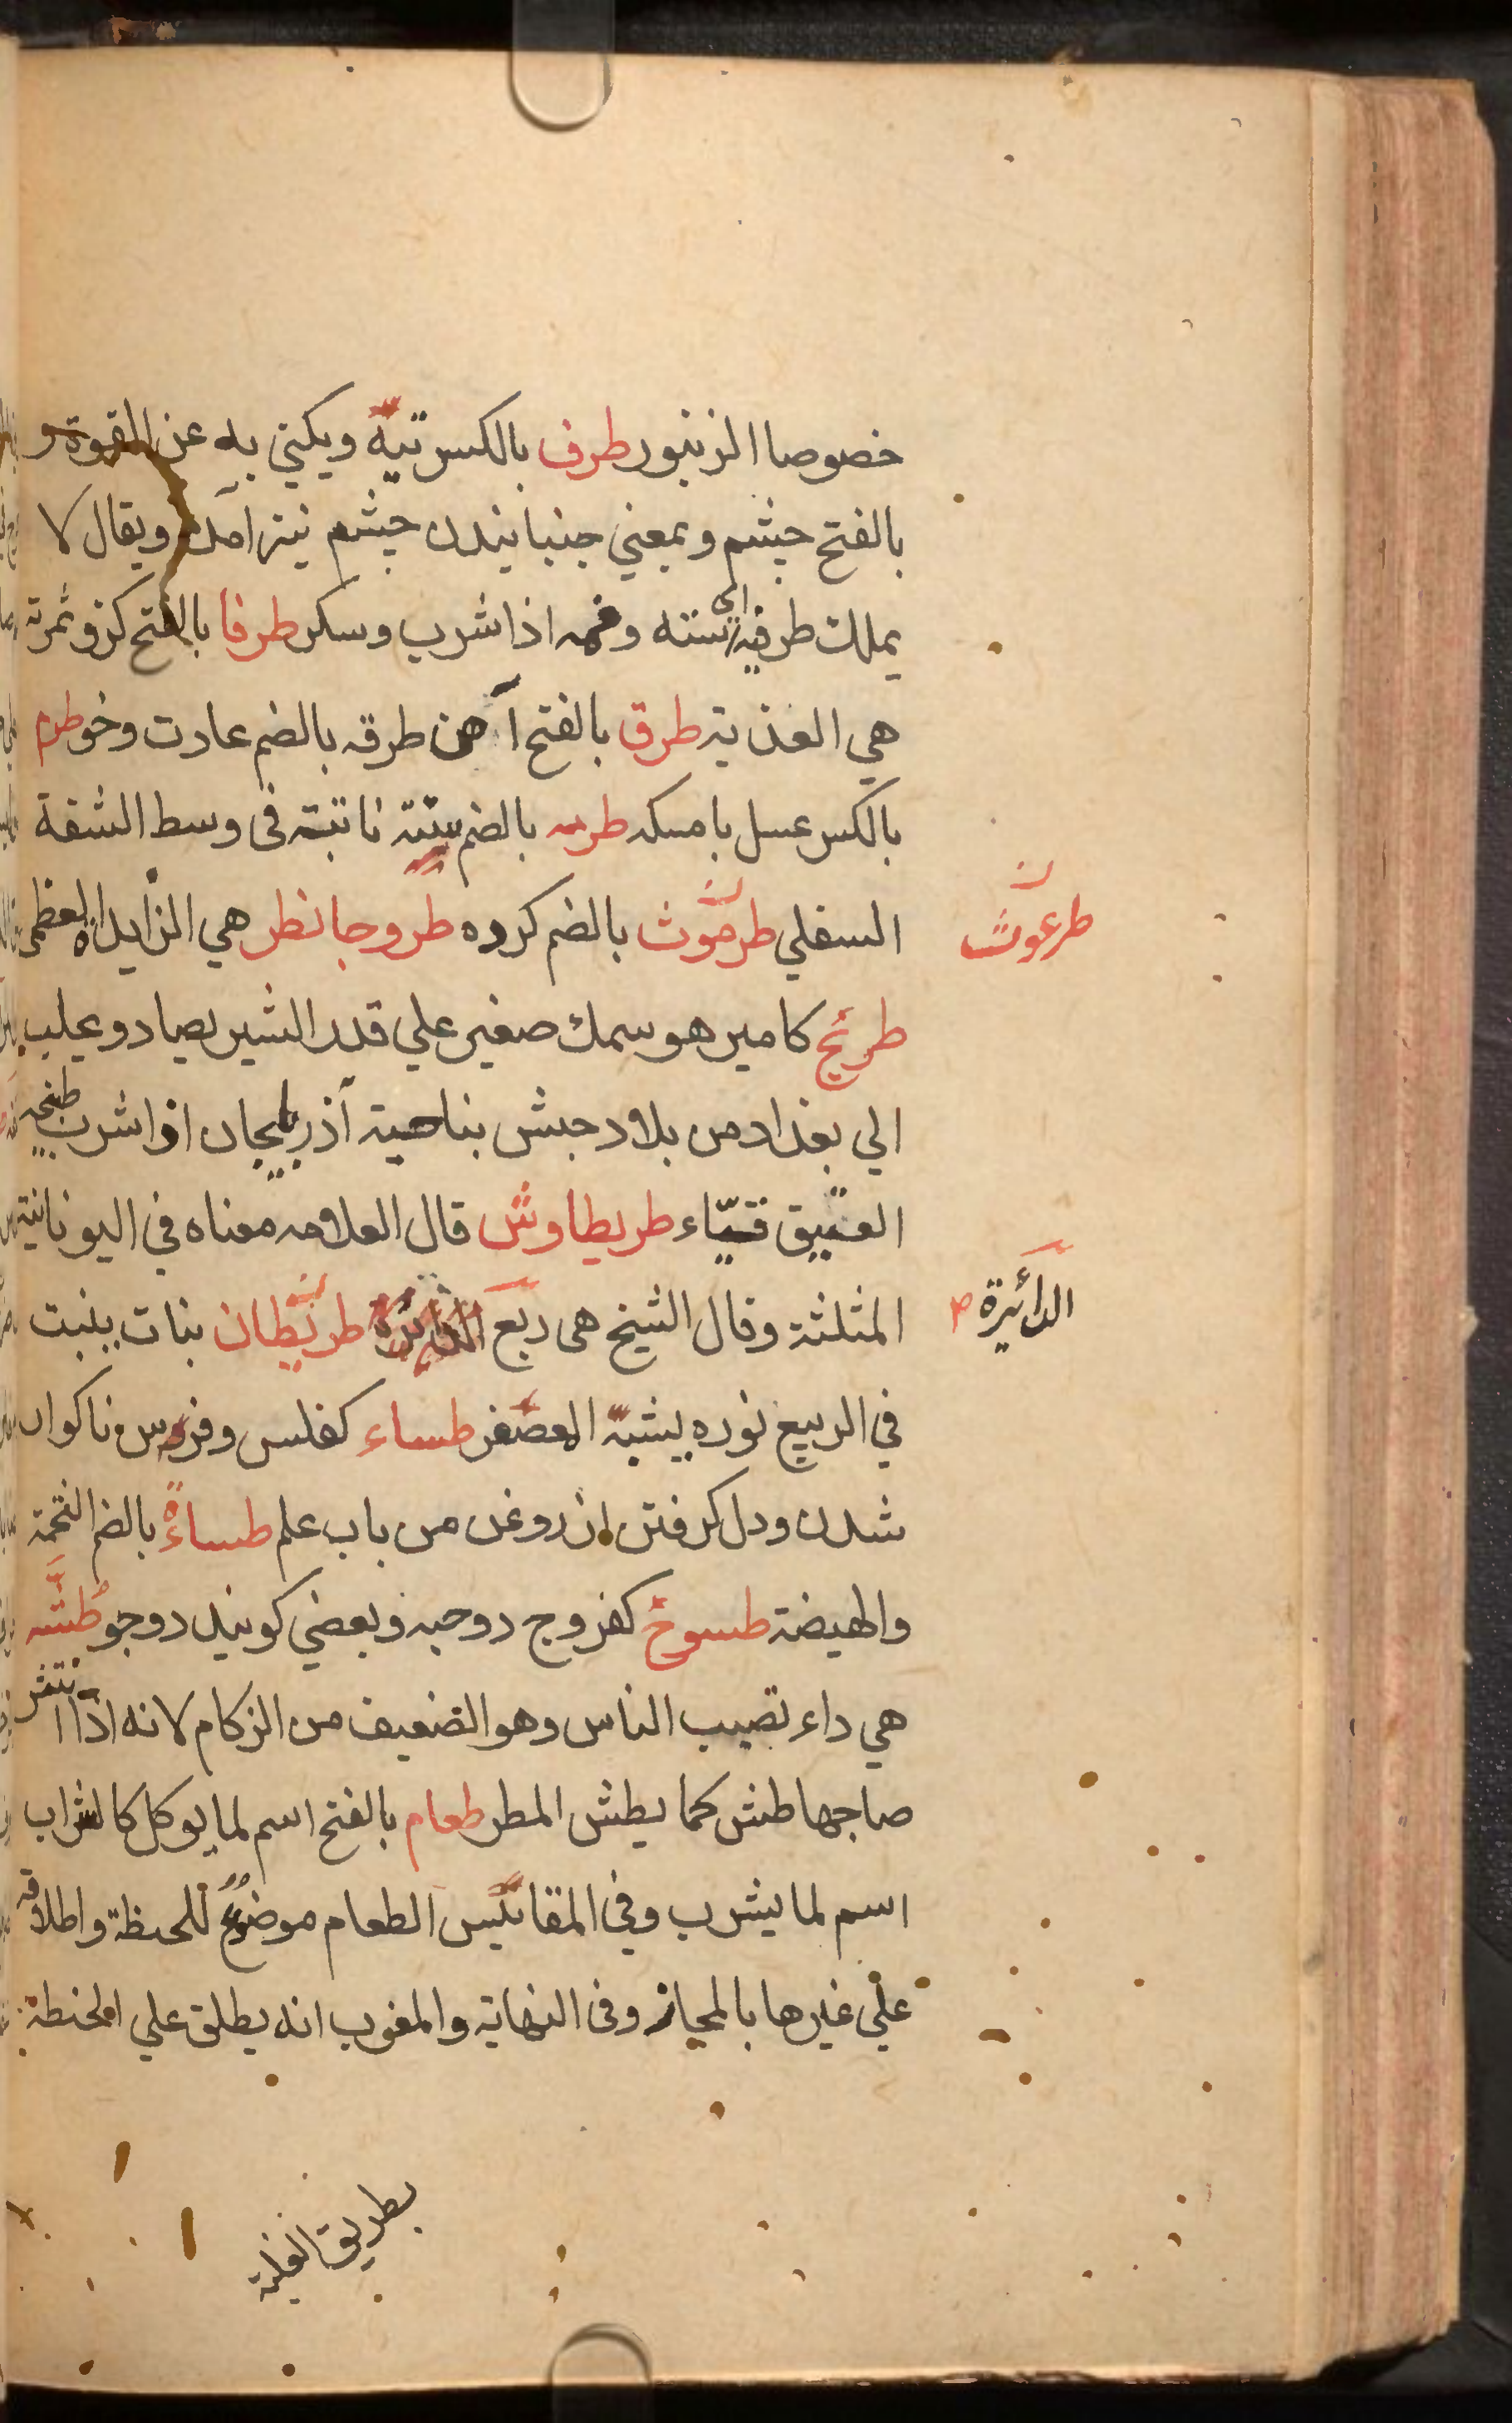 خصوصا الزنبور طرف بالكسر تيه ويكني به عن القوة و
بالفتح چشم وبمعني جنبانيدن چشم نيز آمده ويقال لا
يملك طرفيه اي استه وفمه اذا شرب وسكر طرفا بالفتح كزو ثمرته
هي العذبة طرق بالفتح آهن طرقه بالضم عادت وخو طرم
بالكسر عسل با مسكه طرمه بالضم بثنة ناتية في وسط الشفة
السفلي طرموث بالضم كروه طروجانطر هي الزايدة العظمى
طرعوث
طريح كامير هو سمك صغير علي قدر الشبر يصاد ويجلب
الي بغداد من بلاد حبش بناحية آذربيجان اذا شرب طبخه
العتيق قيّاء طريطاوش قال العلامه معناه في اليونانية
المثلثة وقال الشيخ هي ربع طريطان نبات ينبت
الدائرة
في الربيع نوره يشبه العصفر طساء كفلس وفرس ناكوار
شدن ودل كرفتن از روغن من باب علم طساءة بالضم التخمة
والهيضة طسوج كفروج دو حبه وبعضي كويند دو جو طشه
هي داء تصيب الناس وهو الضعيف من الزكام لانه اذا انتثر
صاحبها طش كما يطش المطر طعام بالفتح اسم لما يوكل كالشراب
اسم لما يشرب وفي المقاييس الطعام موضوع للحنطة واطلاقه
علي غيرها بالمجاز وفي النهاية والمغرب انه يطلق علي الحنطة
بطريق الغلبة